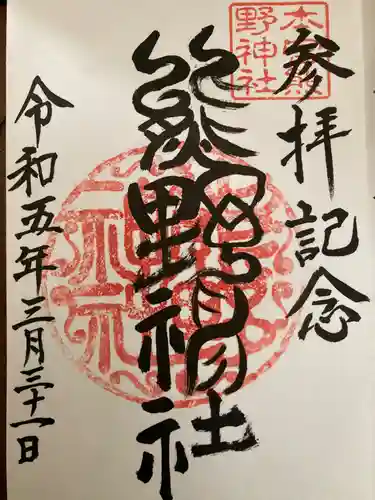 参拝記念
熊野神社
令和五年三月三十一日
熊
野神社